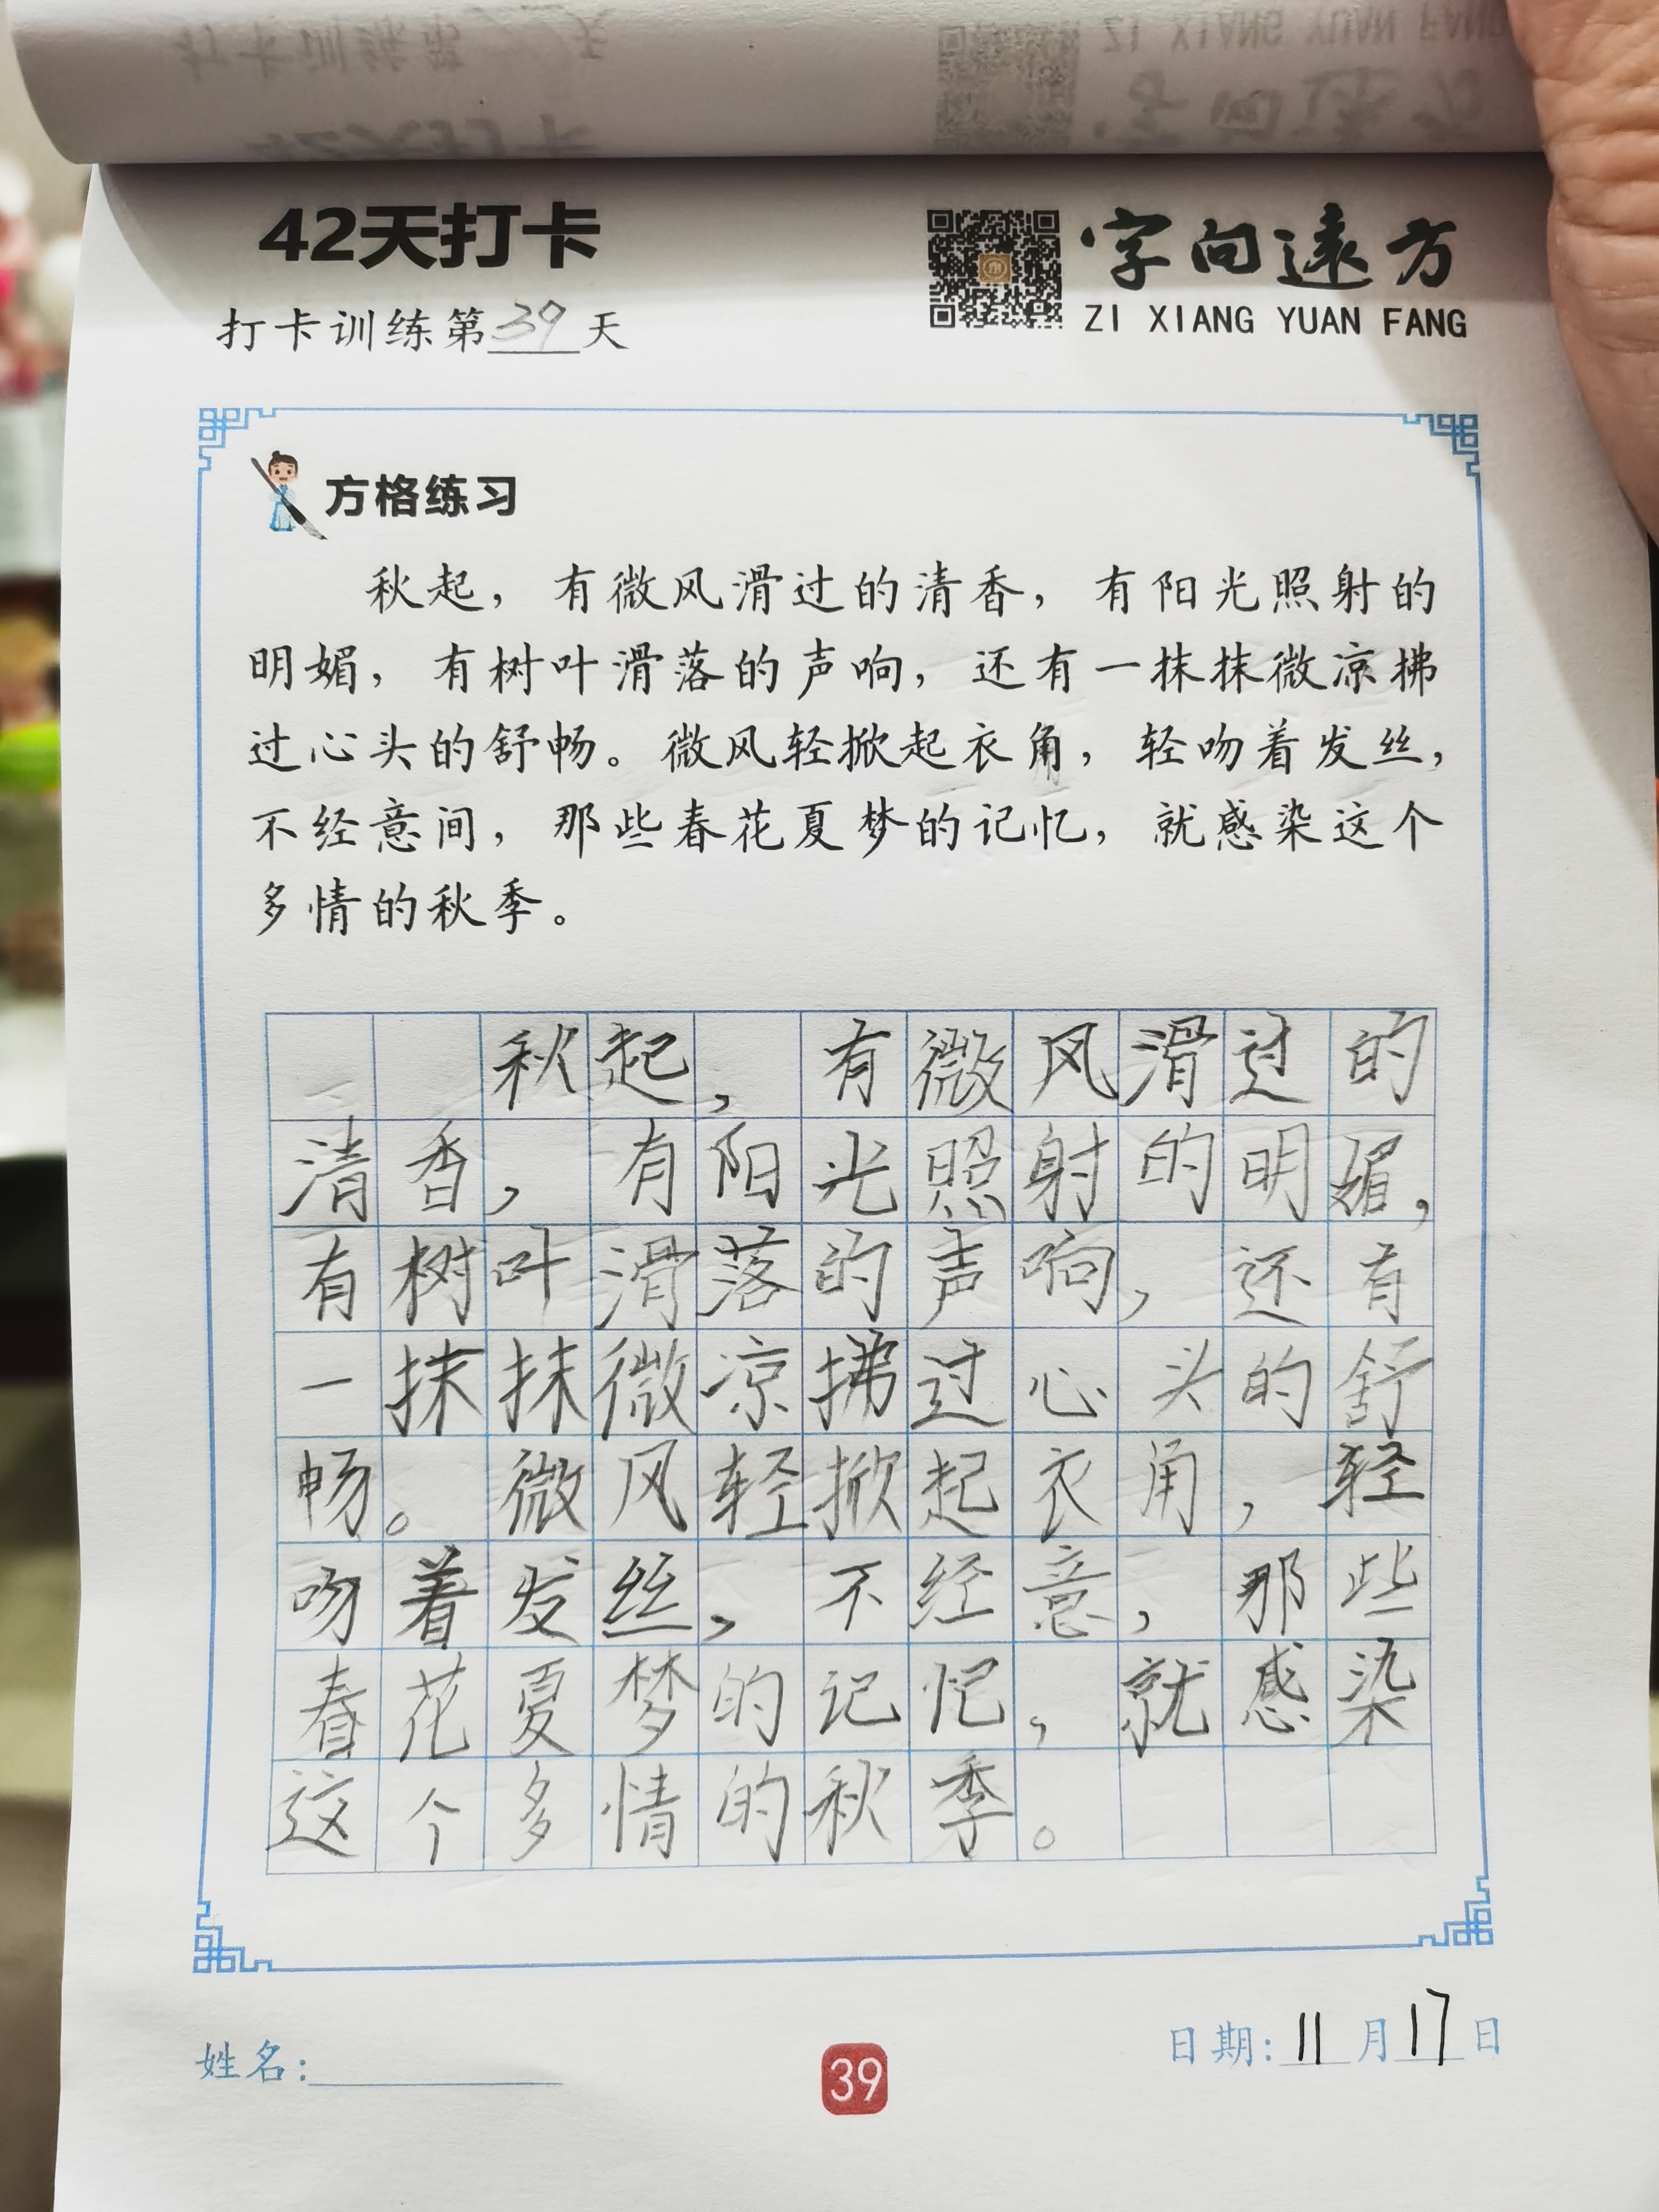 42天打卡
打卡训练第39天
字向远方
ZI XIANG YUAN FANG
方格练习
秋起，有微风滑过的清香，有阳光照射的
明媚，有树叶滑落的声响，还有一抹抹微凉拂
过心头的舒畅。微风轻掀起衣角，轻吻着发丝，
不经意间，那些春花夏梦的记忆，就感染这个
多情的秋季。
秋起，有微风滑过的
清香，有阳光照射的明媚，
有树叶滑落的声响，还有
一抹抹微凉拂过心头的舒
畅。微风轻掀起衣角，轻
吻着发丝，不经意，那些
春花夏梦的记忆，就感染
这个多情的秋季。
姓名：
39
日期：11月17日